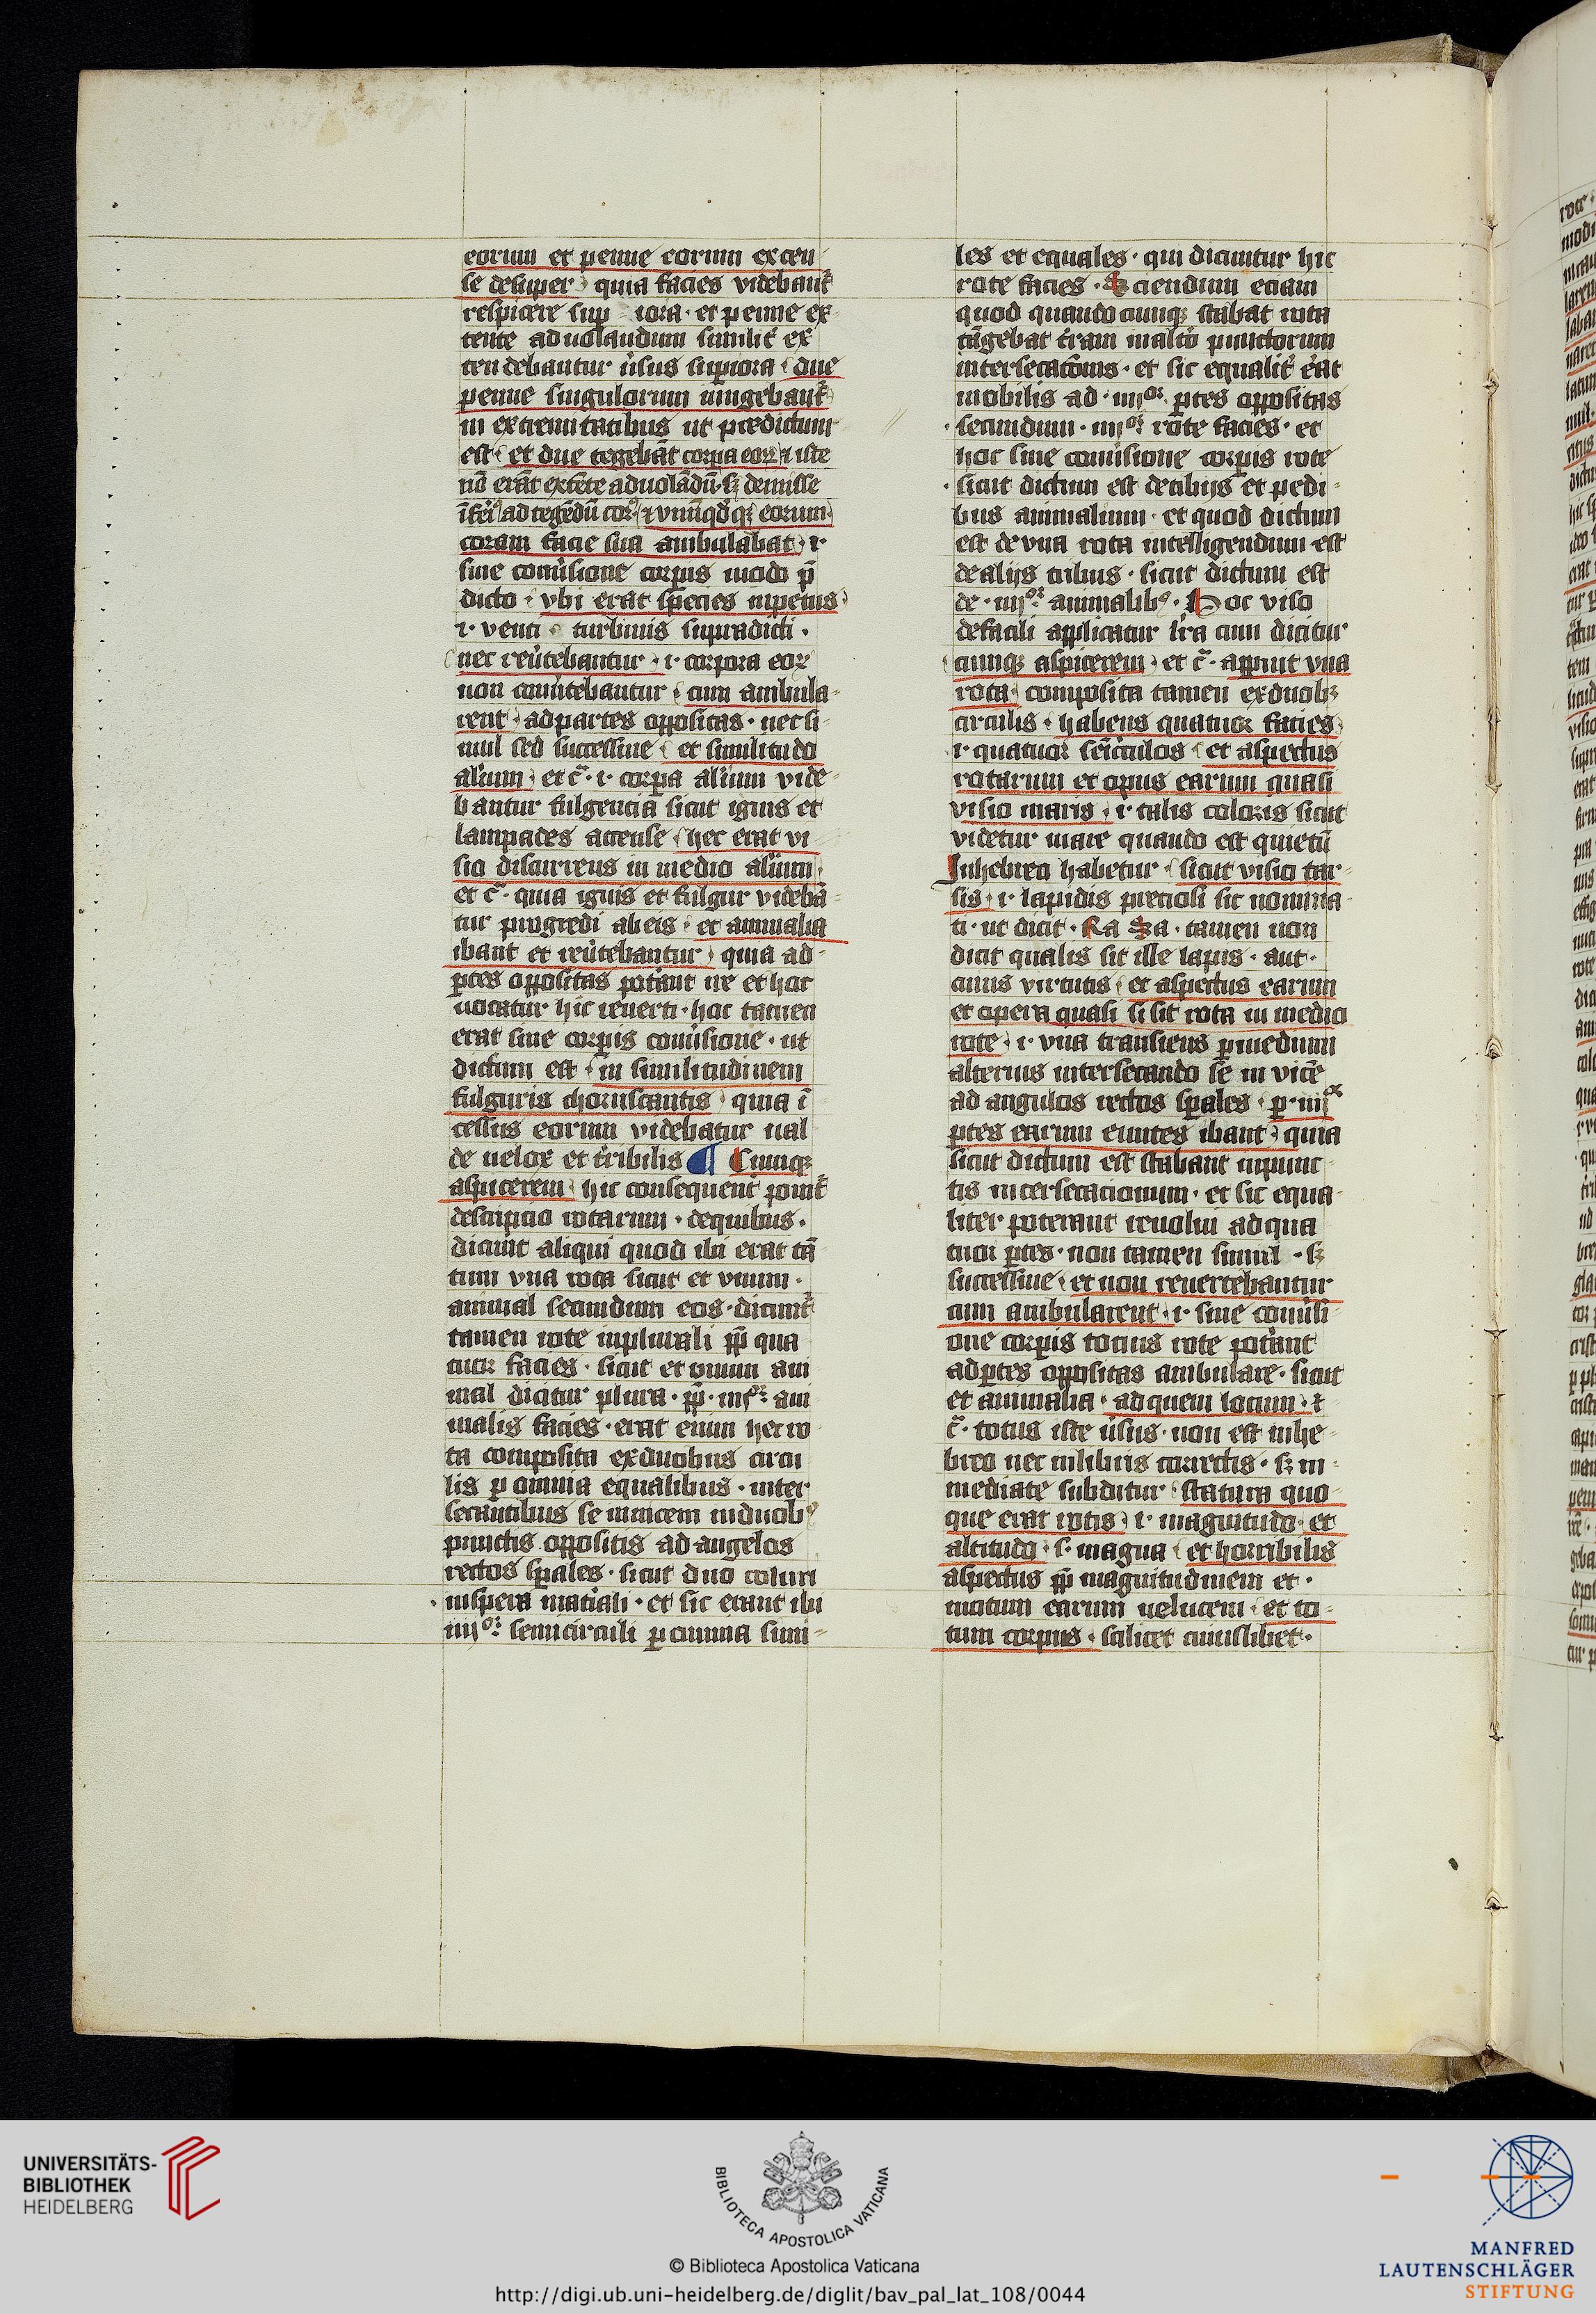 eorum et penne eorum exten
se desuper quia facies videbant᷑
respicere sup iora · et penne ex
tente ad uolandum similit᷑ ex
tendebantur u᷑sus sup̄iora due
penne singulorum iungebant᷑
in extremitatibus ut predictum
est et due tegebāt corꝑa eoꝝ ⁊ iste
nō erāt extēte ad uolādū · sꝫ demisse
ad tegēdū cor᷑ ⁊ vnūqd̄qꝫ eorum
coram facie sua ambulabat · i ·
sine conu᷑sione corꝑis modo p̄
dicto vbi erat species inpetus
· i · venti turbinis supradicti ·
nec reu᷑tebantur · i · corpora eoꝝ
non conu᷑tebantur cum ambula
rent ad partes oppositas · nec si
mul sed successiue et similitudo
al̄ium et c̄ · i · corꝑa al̄ium vide
bantur fulgencia sicut ignis et
lampades accense hec erat vi
sio discurrens in medio al̄ium
et c̄ · quia ignis et fulgur videbā
tur progredi ab eis · et animalia
ibant et reu᷑tebantur quia ad
ꝑtes oppositas pot᷑ant ire et hoc
uocatur hic reuerti · hoc tamen
erat sine corꝑis conu᷑sione · ut
dictum est in similitudinem
fulguris choruscantis quia ī
cessus eorum videbatur ual
de uelox et t᷑ribilis ¶ Cumqꝫ
aspicerem hic consequent᷑ ponit᷑
descripcio rotarum · de quibus ·
dicunt aliqui quod ibi erat tā
tum vna rota sicut et vnum ·
animal secundum eos · dicunt᷑
tamen rote in plurali ꝓp̄ qua
tuor facies · sicut et vnum ani
mal dicitur plura · ꝓp̄ · iiijor · ani
malis facies · erat enim hec ro
ta composita ex duobus circu
lis ꝑ omnia equalibus · inter
secantibus se inuicem in duobꝰ
punctis oppositis ad angelos
rectos sp̄ales · sicut duo coluri
in spera mat᷑iali · et sic erant ibi
iiijor semicirculi ꝑ omnia simi
les et equales · qui dicuntur hic
rote facies · Sciendum eciam
quod quandocumqꝫ stabat rota
tāgebat t᷑ram in alt᷑o punctorum
intersecacōnis · et sic equalit᷑ erat
mobilis ad · iiijor · ꝑtes oppositas
secundum · iiijor rote facies · et
hoc sine conu᷑sione corꝑis rote
sicut dictum est de tibijs et pedi
bus animalium · et quod dictum
est de vna rota intelligendum est
de alijs tribus · sicut dictum est
de · iiijor animalibꝰ · Hoc viso
de facili applicatur lr̄a cum dicitur
cumqꝫ aspicerem et c̄ · apparuit vna
rota composita tamen ex duobꝫ
circulis habens quatuor facies
· i · quatuor sēiciculos et aspectus
rotarum et opus earum quasi
visio maris · i · talis coloris sicut
videtur mare quando est quietū
In hebreo habetur sicut visio tar
sis · i · lapidis preciosi sic nomina
ti · ut dicit · Ra Sa · tamen non
dicit qualis sit ille lapis · aut ·
cuius virtutis et aspectus earum
et opera quasi si sit rota in medio
rote · i · vna transiens ꝑ medium
alterius intersecando sē in vicē
ad angulos rectos sp̄ales · ꝑ · iiijor
ꝑtes earum euntes ibant quia
sicut dictum est stabant in punc
tis intersecacionum · et sic equa
liter poterant reuolui ad qua
tuor ꝑtes · non tamen simul · sꝫ
successiue et non reuertebantur
cum ambularent · i · sine conu᷑si
one corꝑis tocius rote pot᷑ant
ad ꝑtes oppositas ambulare · sicut
et animalia · ad quem locum · ⁊
c̄ · totus iste u᷑sus · non est in he
breo nec in libris correctis · sꝫ in
mediate subditur statura quo
que erat rotis · i · magnitudo · et
altitudo · s · magna et horribilis
aspectus ꝓp̄ magnitudinem et ·
motum earum uelocem et to
tum corpus · scilicet cuiuslibet ·
UNIVERSITÄTS-
BIBLIOTHEK
HEIDELBERG
BIBLIOTECA APOSTOLICA VATICANA
© Biblioteca Apostolica Vaticana
http://digi.ub.uni-heidelberg.de/diglit/bav_pal_lat_108/0044
MANFRED
LAUTENSCHLÄGER
STIFTUNG